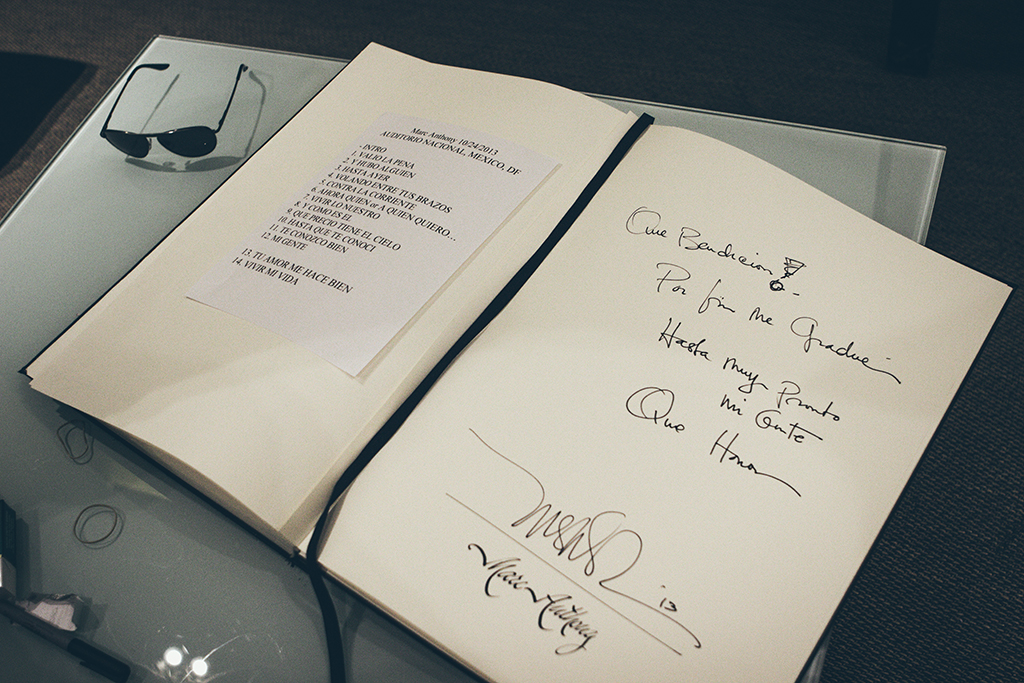 Marc Anthony 10/24/2013
AUDITORIO NACIONAL, MEXICO, DF
- INTRO
1. VALIO LA PENA
2. Y HUBO ALGUIEN
3. HASTA AYER
4. VOLANDO ENTRE TUS BRAZOS
5. CONTRA LA CORRIENTE
6. AHORA QUIEN or A QUIEN QUIERO...
7. VIVIR LO NUESTRO
8. Y COMO ES EL
9. QUE PRECIO TIENE EL CIELO
10. HASTA QUE TE CONOCI
11. TE CONOZCO BIEN
12. MI GENTE
13. TU AMOR ME HACE BIEN
14. VIVIR MI VIDA
Que Bendicion!
Por fin me Gradue
Hasta muy Pronto
mi Gente
Que Honor
'13
Marc Anthony